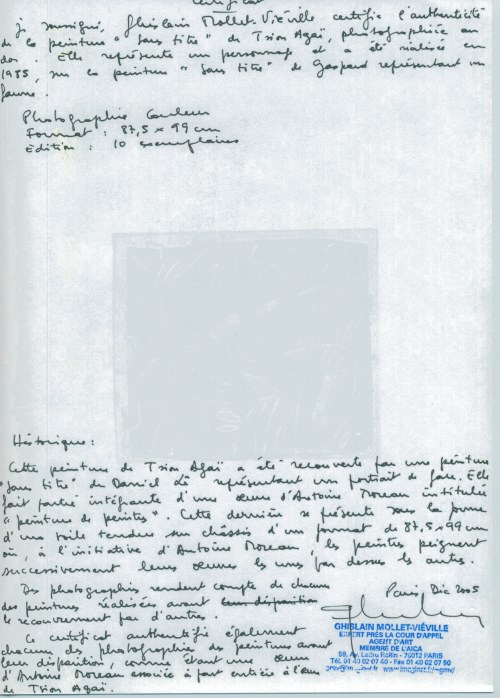 Certificat
je soussigné, Ghislain Mollet-Viéville certifie l'authenticité
de la peinture "Sans titre" de Tsion Agaï, photographiée au
dos. Elle représente un personnage et a été réalisée en
1985, sur la peinture "Sans titre" de Gaspard représentant un
faune.
Photographie Couleur
Format : 87,5 x 99 cm
Edition : 10 exemplaires
Historique :
Cette peinture de Tsion Agaï a été recouverte par une peinture
"Sans titre" de Daniel représentant un portrait de face. Elle
fait partie intégrante d'une œuvre d'Antoine Moreau intitulée
"peinture de peintres". Cette dernière se présente sous la forme
d'une toile tendue sur châssis d'un format de 87,5 x 99 cm
où, à l'initiative d'Antoine Moreau, les peintres peignent
successivement leurs œuvres les unes par dessus les autres.
Des photographies rendent compte de chacune
des peintures réalisées avant leur disparition
le recouvrement par d'autres.
Ce certificat authentifie également
chacune des photographies des peintures avant
leur disparition, comme étant une œuvre
d'Antoine Moreau associée à part entière à l'œuvre
de Tsion Agaï.
Paris Dec 2005
GHISLAIN MOLLET-VIÉVILLE
EXPERT PRÈS LA COUR D'APPEL
AGENT D'ART
MEMBRE DE L'AICA
Av. Ledru Rollin - 75012 PARIS
Tél. 01 40 02 07 40 - Fax 01 40 02 07 50